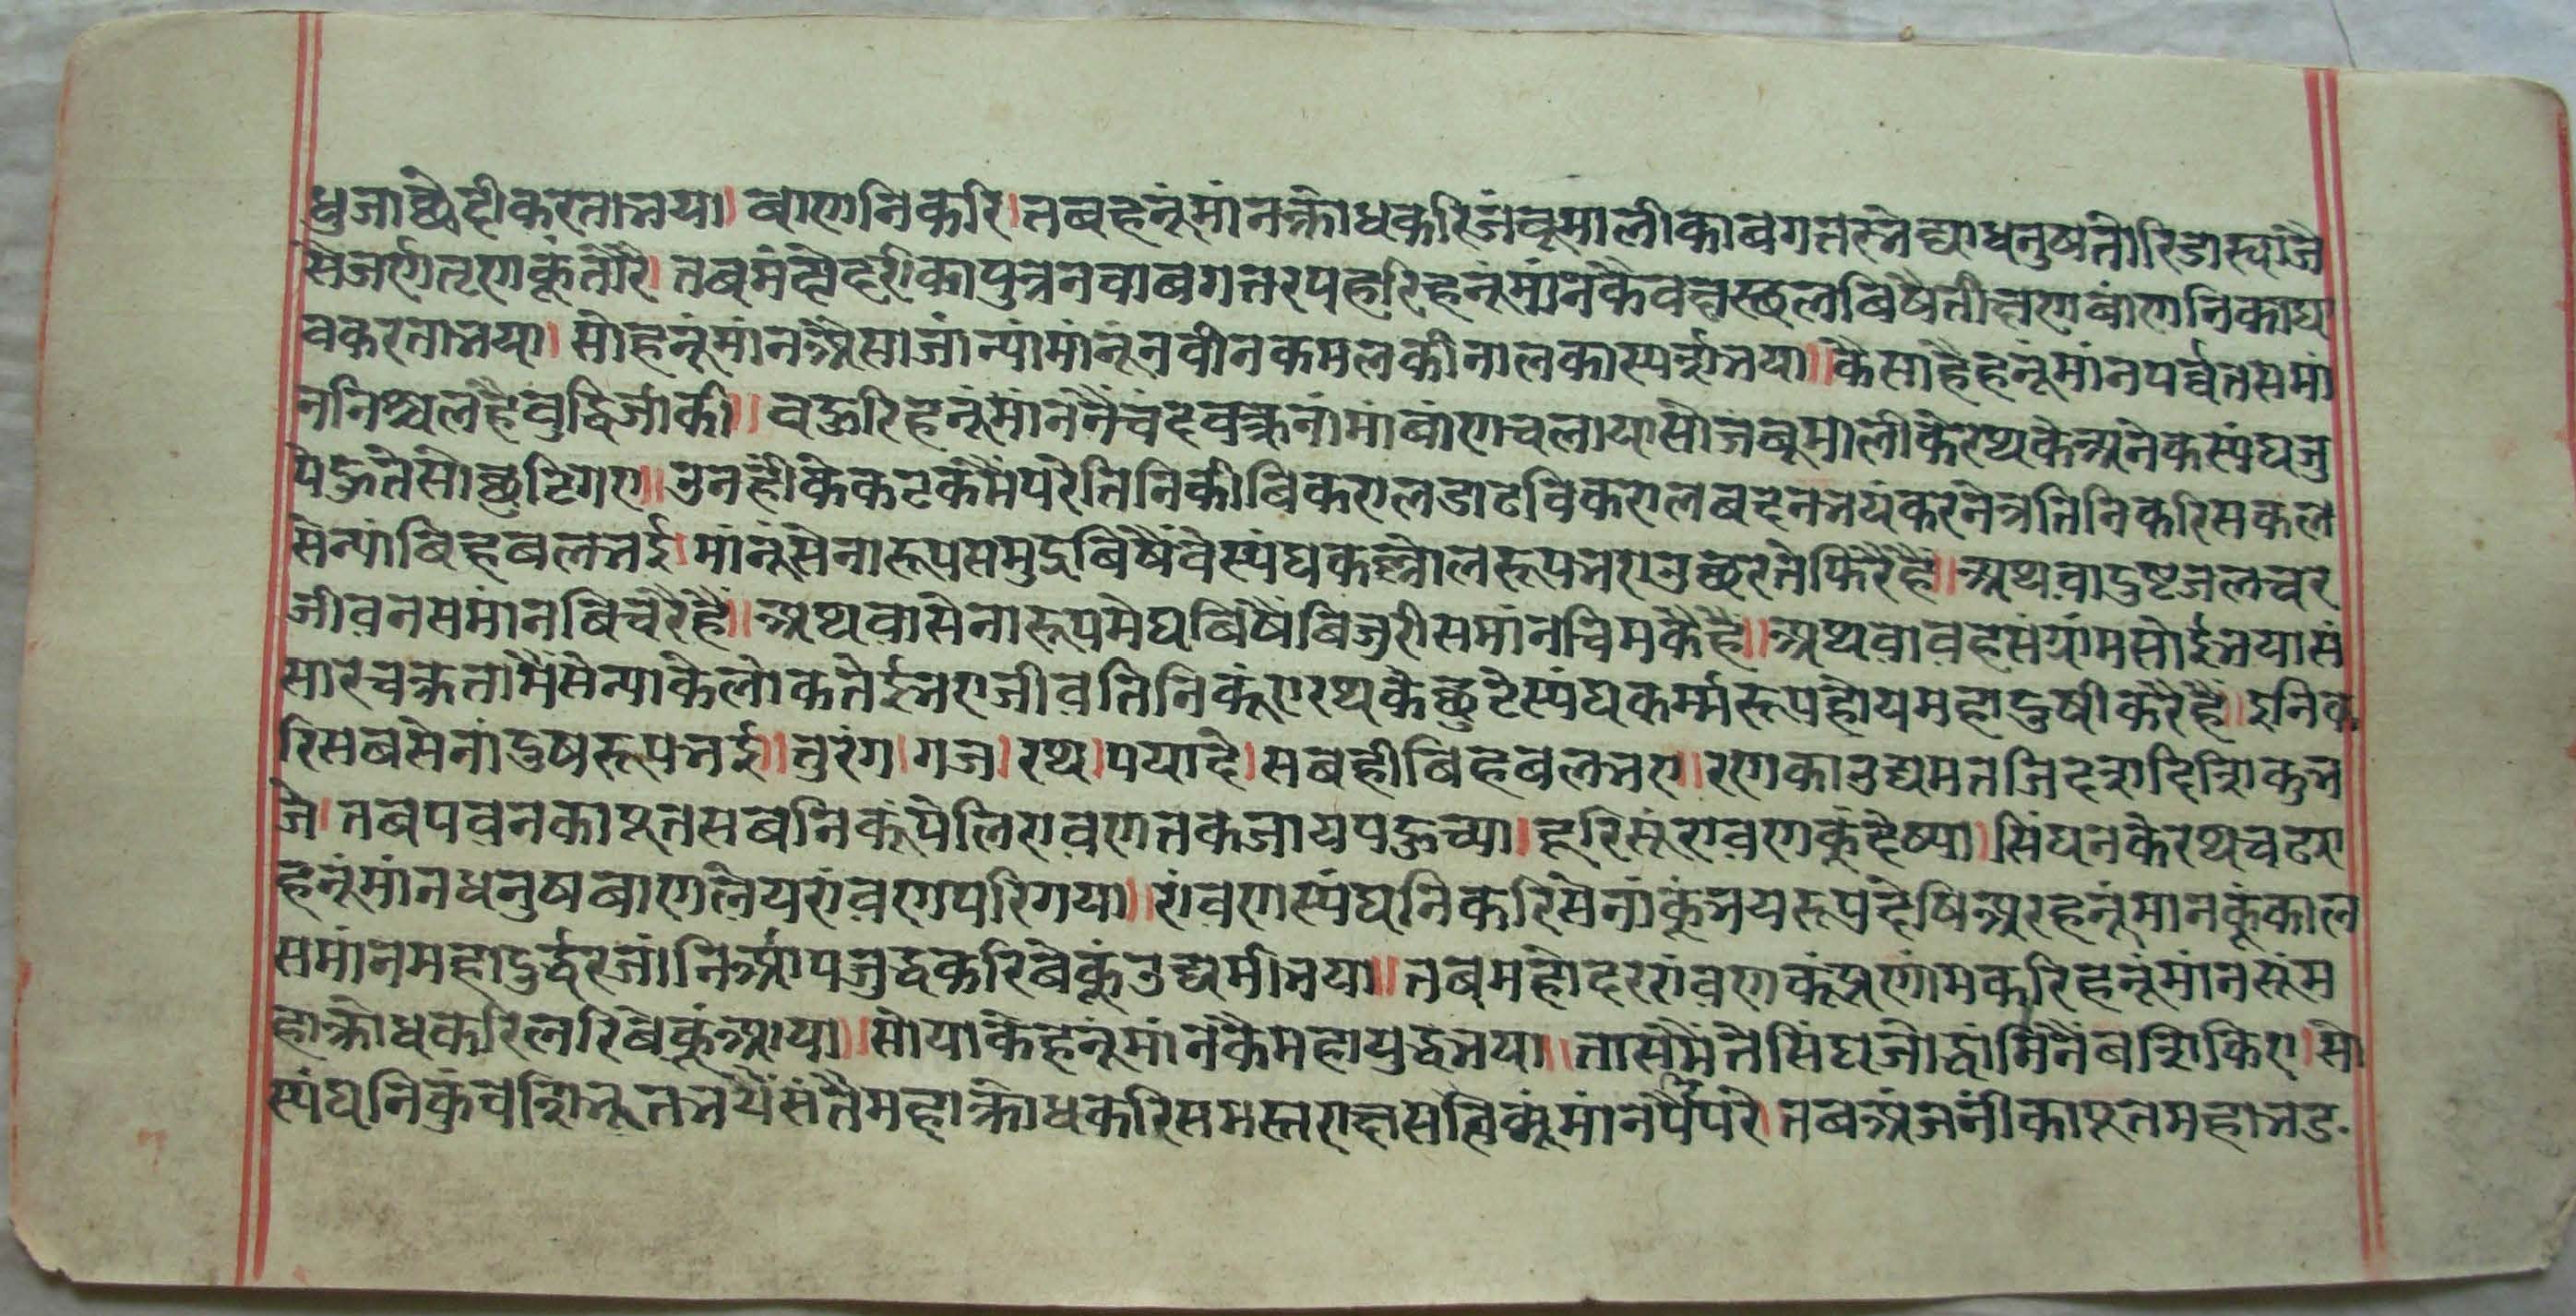 धुजाछेदीकरताभया। बाणनिकरि। तबहनूंमांनक्रोधकरिजंबूमालीकाबगतरभेद्याधनुषतोरिडास्यांजै
सेजर्णतृणकूंतौरै। तबमंदोदरीकापुत्रनवाबगतरपहरिहनूंमांनकैवक्षस्थलबिषैतीक्षणबांणनिकाघा
वकरताभया। सोहनूंमांनऐसाजांन्यांमांनूंनवीनकमलकीनालकास्पर्शभया॥कैसाहैहनूंमांनपर्व्वतसमां
ननिश्चलहैबुद्धिजाकी॥ बहुरिहनूंमांननैचंद्रवक्रनांमांबांणचलायासोजंबूमालीकेरथकेअनेकस्यंघजु
पेहुतेसोछुटिगए॥ उनहींकेकटकमैंपरेतिनिकीबिकरालडाढविकरालबदनभयंकरनेत्रतिनिकरिसकल
सेन्यांबिहबलभई। मांनूंसेनारूपसमुद्रबिषैंवेस्यंघकल्लोलरूपभएउछरतेफिरैहैं॥ अथवादुष्टजलचर
जीवनसमांनबिचरैहैं॥ अथवासेनारूपमेघबिषैंबिजुरीसमांनचिमकैहै॥ अथवावहसंग्रांमसोईभयासं
सारचक्रतामैंसेन्याकेलोकतेईभएजीवतिनिकूंएरथकेछुटेस्यंघकर्म्मरूपहोयमहादुषीकरैहैं॥ इनिक
रिसबसेनांदुषरूपभई॥ तुरंग।गज।रथ।पयादे।सबहीबिहबलभए॥ रणकाउद्यमतजिदशोंदिशिकूंभ
जे। तबपवनकापूतसबनिकूंपेलिरावणतकजायपहुच्या। दूरिसूंरावणकूंदेष्या। सिंघनकेरथचढ्या
हनूंमांनधनुषबाणलेयरांवणपरिगया॥ रांवणस्यंघनिकरिसेनांकूंभयरूपदेषिअरहनूंमानकूंकाल
समांनमहादुर्द्धरजांनिआपजुद्धकरिबेकूंउद्यमीभया॥ तबमहोदररांवणकूंप्रणांमकरिहनूंमांनसूंम
हाक्रोधकरिलरिबेकूंआया॥ सोयाकेहनूंमांनकैमहायुद्धभया॥ तासमैंतेसिंघजोद्धांनिनैंबशिकिए। सो
स्यंघनिकूंवशिभूतभयेसंतेमहाक्रोधकरिसमस्तराक्षसहनूंमांनपैंपरे। तबअंजनीकापूतमहाभड